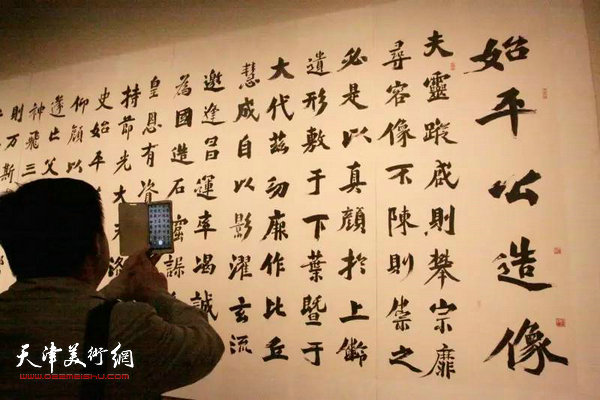 始平公造像
夫靈蹤戚則攀宗靡
尋容像不陳則崇之
必是以真顏於上齡
遺形敷于下葉暨于
大代茲功厥作比丘
慧成自以影濯玄流
邀逢昌運率渴誠
為國造石窟
皇恩有資
持節光大夫洛
史始平
仰顏以
逢止父
神飛三
則万斯
天津美術網
www.022meishu.com